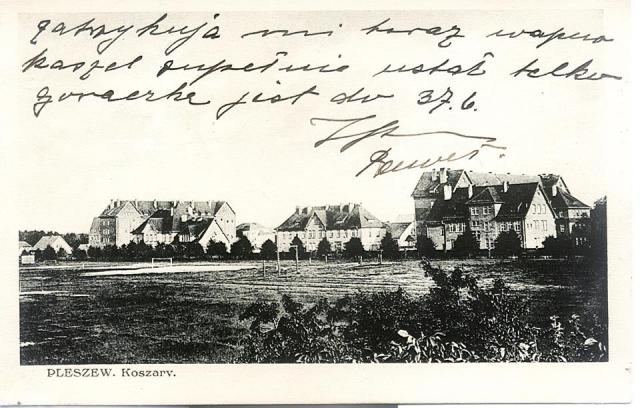 zatrzykują mi teraz wapno
kaszel zupełnie ustał tylko
gorączkę jest do 37.6.
PLESZEW. Koszary.